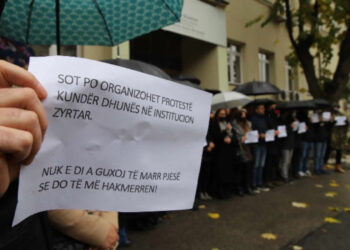 SOT PO ORGANIZOHET PROTESTË
KUNDËR DHUNËS NË INSTITUCION
ZYRTAR.
NUK E DI A GUXOJ TË MARR PJESË
SE DO TË MË HAKMERREN!